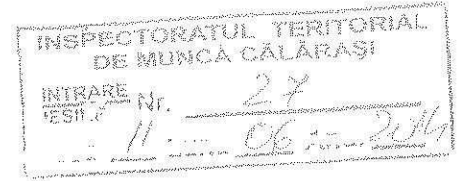 INSPECTORATUL TERITORIAL
DE MUNCĂ CĂLĂRAȘI
INTRARE
IEȘIRE Nr. 27
11 06 2014